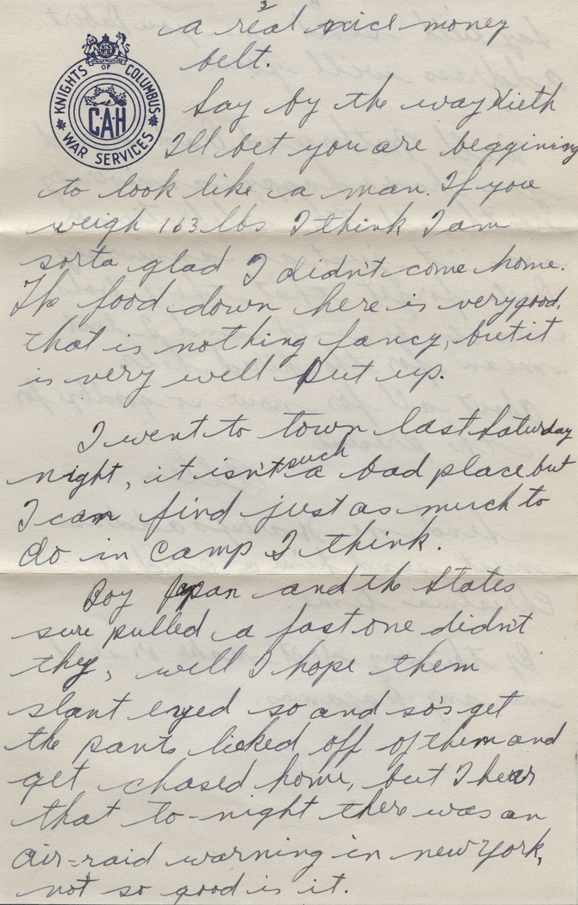 3
a real nice money
belt.
KNIGHTS OF COLUMBUS
CAH
WAR SERVICES
Say by the way Kieth
I'll bet you are beggining
to look like a man. If you
weigh 163 lbs I think I am
sorta glad I didn't come home.
The food down here is very good,
that is nothing fancy, but it
is very well put up.
I went to town last Saturday
night, it isn't such a bad place but
I can find just as much to
do in camp I think.
Boy Japan and the States
sure pulled a fast one didn't
they, well I hope them
slant eyed so and so's get
the pants licked off of them and
get chased home, but I hear
that to-night there was an
air-raid warning in new York,
not so good is it.